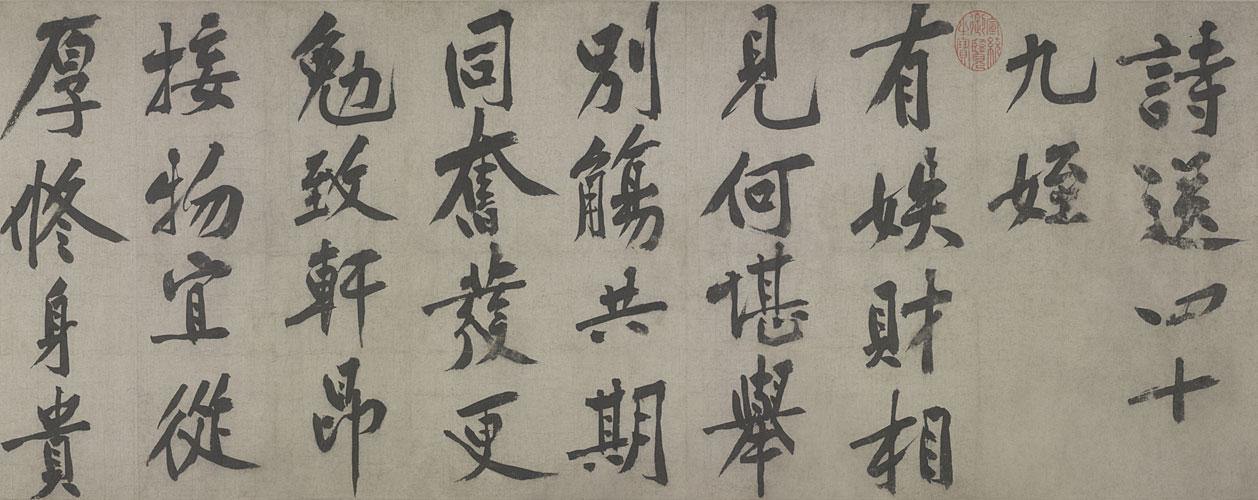 詩送四十
九姪
有娭財相
見何堪舉
別觴共期
同奮發更
勉致軒昂
接物宜從
厚修身貴
宣統
御覽
之寶